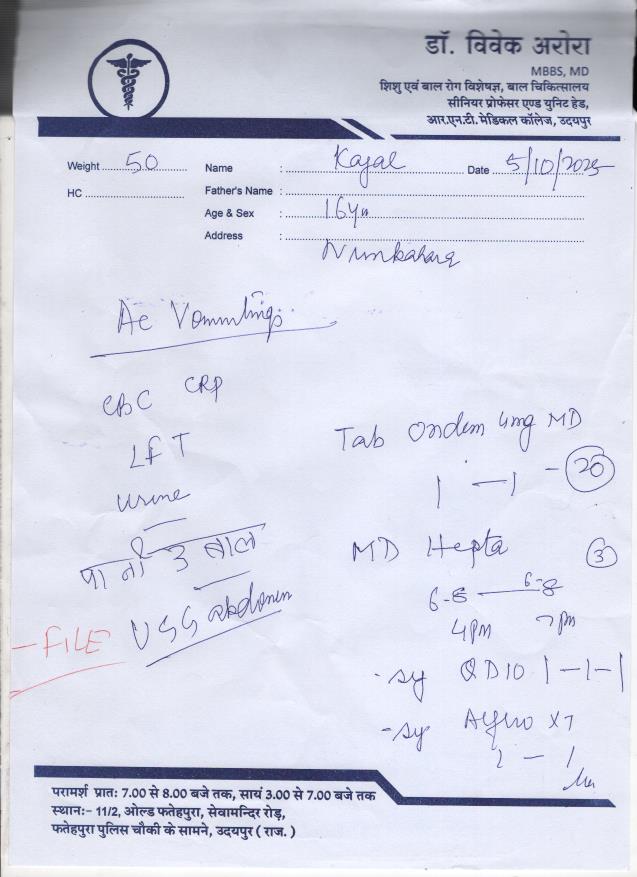 डॉ. विवेक अरोरा
MBBS, MD
शिशु एवं बाल रोग विशेषज्ञ, बाल चिकित्सालय
सीनियर प्रोफेसर एण्ड युनिट हेड,
आर.एन.टी. मेडिकल कॉलेज, उदयपुर
Weight 50 Name : Kajal Date 5/10/2025
HC Father's Name :
Age & Sex : 16yr
Address :
Ac Vommtings
CBC CRP
LFT
Urine
Tab Ondem 4mg MD
1 — 1 - 20
पानी उबाल
MD Hepta 3
6-8 — 6-8
4PM 7PM
USG abdomen
- FILE
- sy QD10 1 - 1 - 1
- sy x7
परामर्श प्रातः 7.00 से 8.00 बजे तक, सायं 3.00 से 7.00 बजे तक
स्थानः- 11/2, ओल्ड फतेहपुरा, सेवामन्दिर रोड़,
फतेहपुरा पुलिस चौकी के सामने, उदयपुर ( राज. )